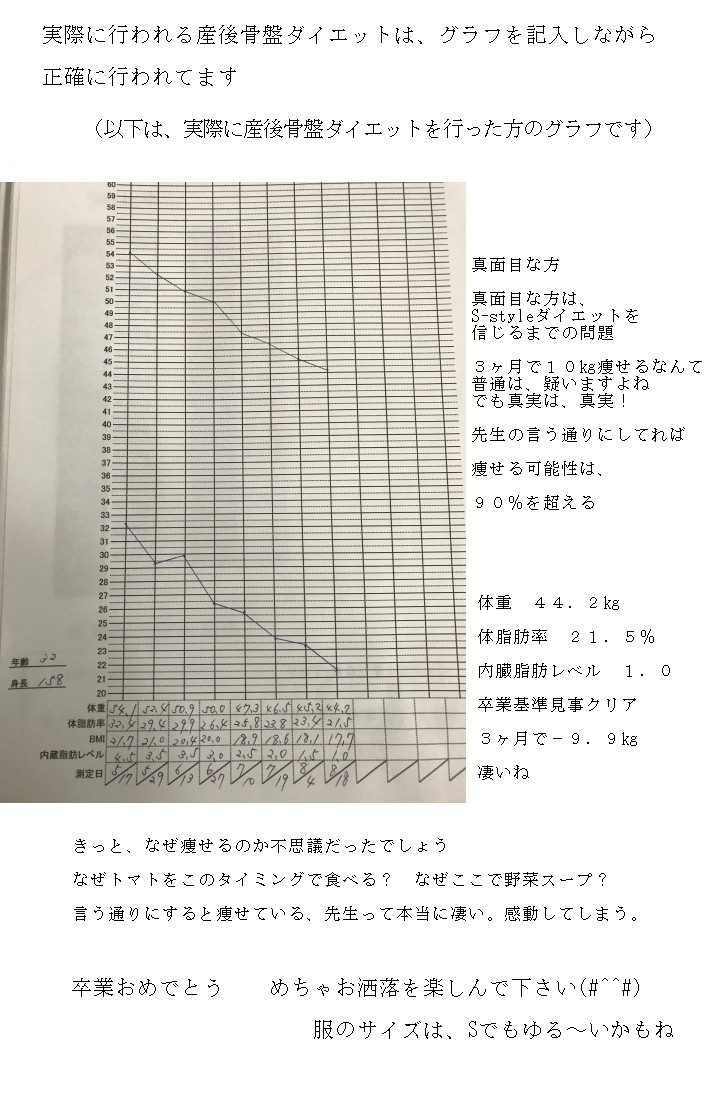 実際に行われる産後骨盤ダイエットは、グラフを記入しながら
正確に行われてます
（以下は、実際に産後骨盤ダイエットを行った方のグラフです）
60
59
58
57
56
55
54
53
52
51
50
49
48
47
46
45
44
43
42
41
40
39
38
37
36
35
34
33
32
31
30
29
28
27
26
25
24
23
22
21
20
年齢 32
身長 158
体重 54,1 52,4 50,9 50,0 47,3 46,5 45,2 44,2
体脂肪率 32,4 29,4 29,9 26,4 25,8 23,8 23,4 21,5
BMI 21,7 21,0 20,4 20,0 18,9 18,6 18,1 17,7
内蔵脂肪レベル 4,5 3,5 3,5 3,0 2,5 2,0 1,5 1,0
測定日 5/17 5/29 6/13 6/27 7/10 7/19 8/4 8/18
真面目な方
真面目な方は、
S-styleダイエットを
信じるまでの問題
３ヶ月で１０㎏痩せるなんて
普通は、疑いますよね
でも真実は、真実！
先生の言う通りにしてれば
痩せる可能性は、
９０％を超える
体重　４４．２㎏
体脂肪率　２１．５％
内臓脂肪レベル　１．０
卒業基準見事クリア
３ヶ月で－９．９㎏
凄いね
きっと、なぜ痩せるのか不思議だったでしょう
なぜトマトをこのタイミングで食べる？　なぜここで野菜スープ？
言う通りにすると痩せている、先生って本当に凄い。感動してしまう。
卒業おめでとう　　めちゃお洒落を楽しんで下さい(#^^#)
服のサイズは、Sでもゆる～いかもね